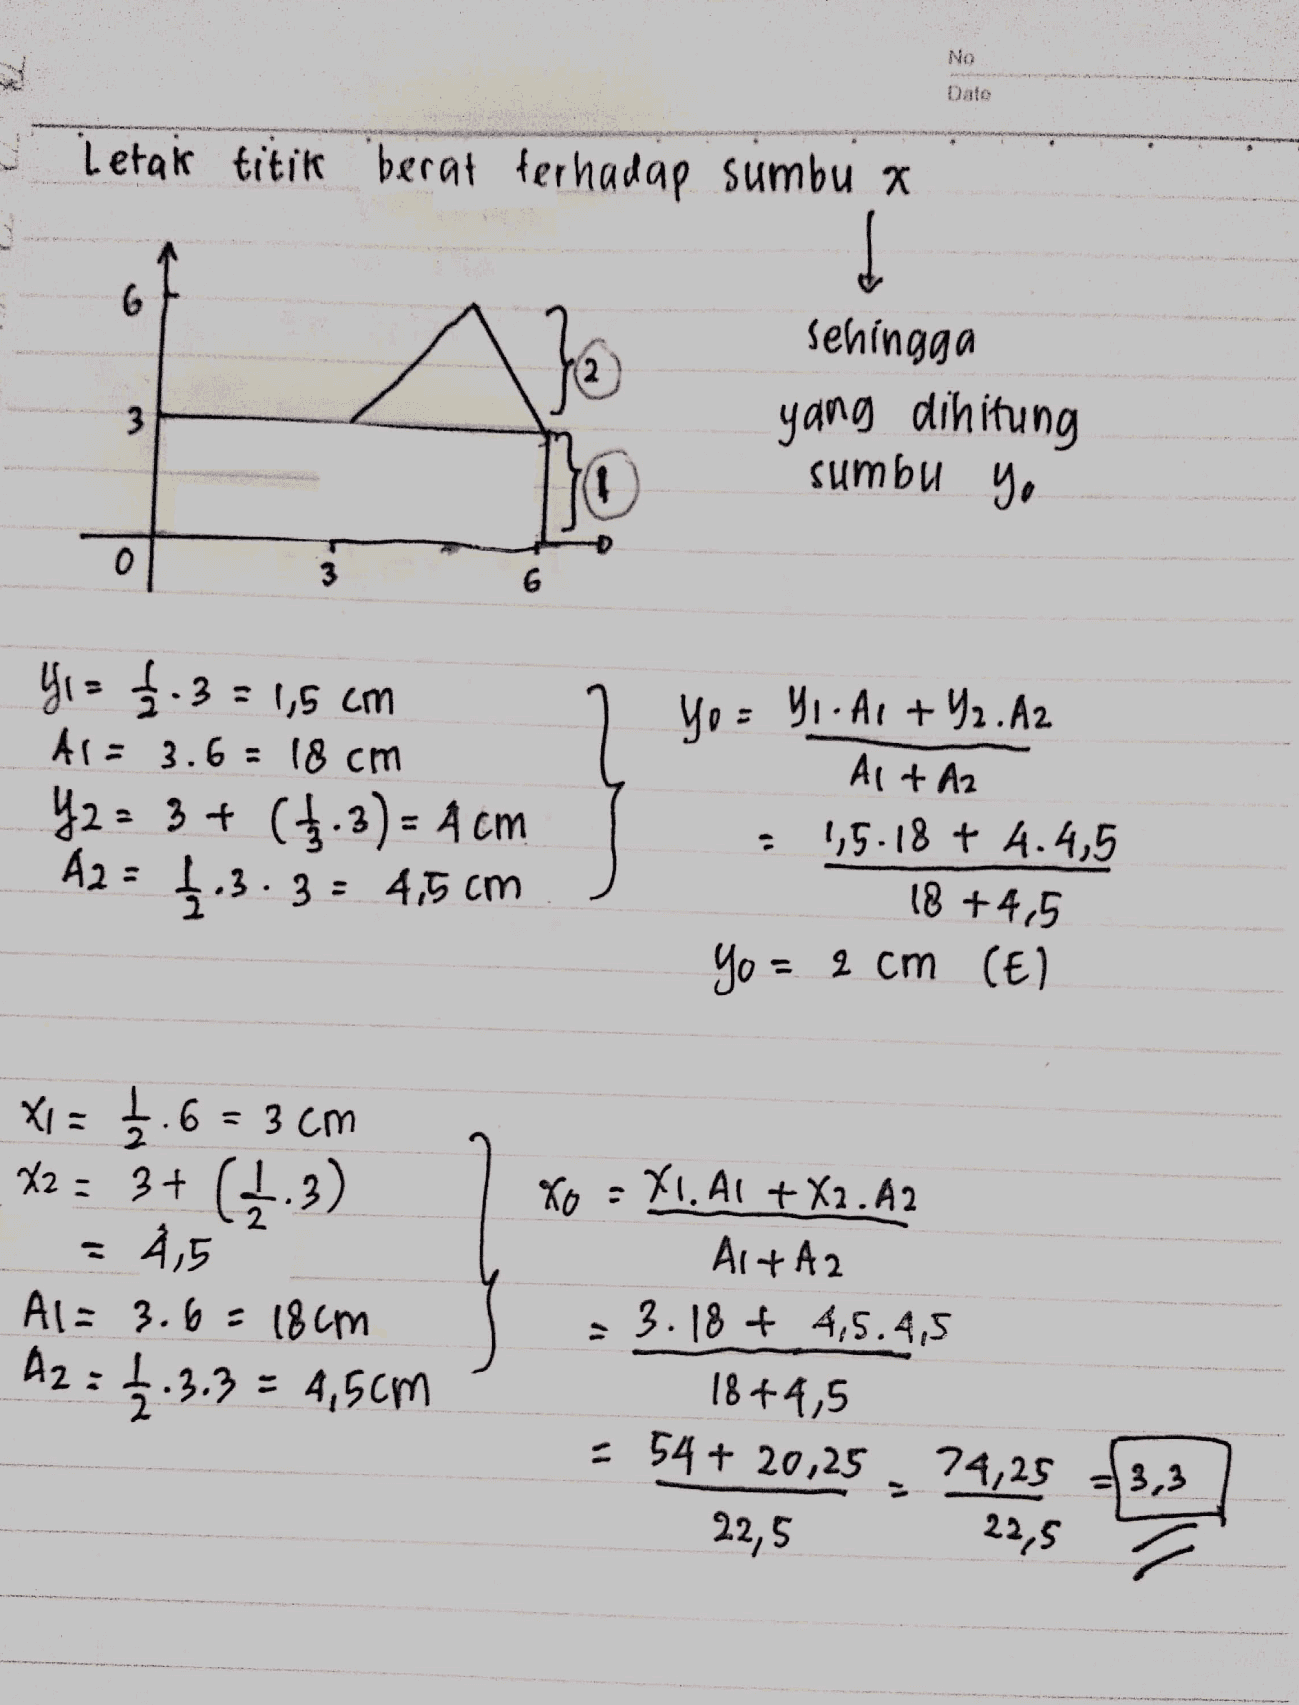 No
Date
Letak titik berat terhadap sumbu x
↓
sehingga
yang dihitung
sumbu y₀
6
3
0
3
6
2
1
y1 = 1/2 . 3 = 1,5 cm
A1 = 3.6 = 18 cm
y2 = 3 + (1/3 . 3) = 4 cm
A2 = 1/2 . 3 . 3 = 4,5 cm
y0 = y1 . A1 + y2 . A2
A1 + A2
= 1,5 . 18 + 4 . 4,5
18 + 4,5
y0 = 2 cm (E)
x1 = 1/2 . 6 = 3 cm
x2 = 3 + (1/2 . 3)
= 4,5
A1 = 3.6 = 18 cm
A2 = 1/2 . 3.3 = 4,5 cm
x0 = x1 . A1 + x2 . A2
A1 + A2
= 3 . 18 + 4,5 . 4,5
18 + 4,5
= 54 + 20,25 = 74,25 = 3,3
22,5 22,5